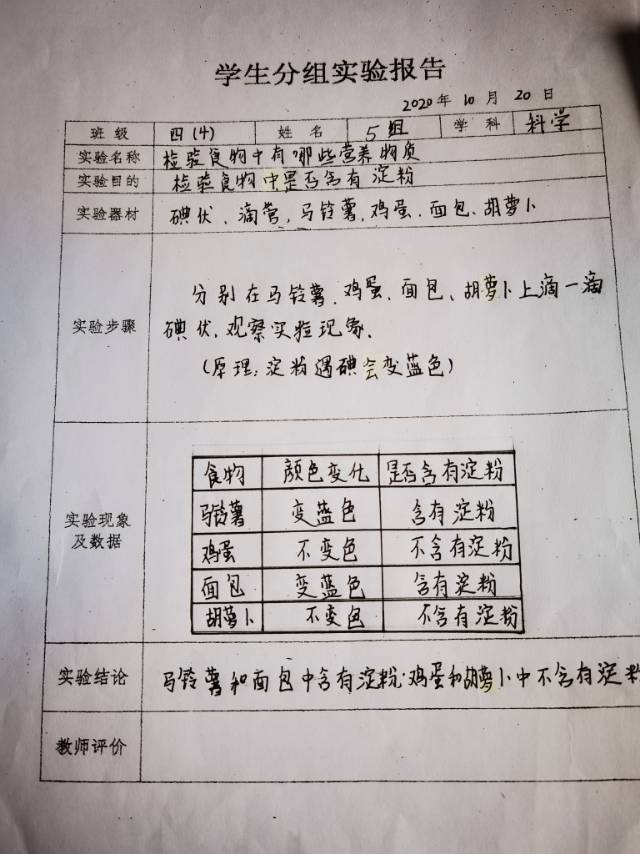 学生分组实验报告
2020年10月20日
班级 四(4) 姓名 5组 学科 科学
实验名称 检验食物中有哪些营养物质
实验目的 检验食物中是否含有淀粉
实验器材 碘伏、滴管、马铃薯、鸡蛋、面包、胡萝卜
分别在马铃薯、鸡蛋、面包、胡萝卜上滴一滴
实验步骤 碘伏,观察实验现象.
(原理:淀粉遇碘会变蓝色)
实验现象及数据
食物 颜色变化 是否含有淀粉
马铃薯 变蓝色 含有淀粉
鸡蛋 不变色 不含有淀粉
面包 变蓝色 含有淀粉
胡萝卜 不变色 不含有淀粉
实验结论 马铃薯和面包中含有淀粉.鸡蛋和胡萝卜中不含有淀
教师评价